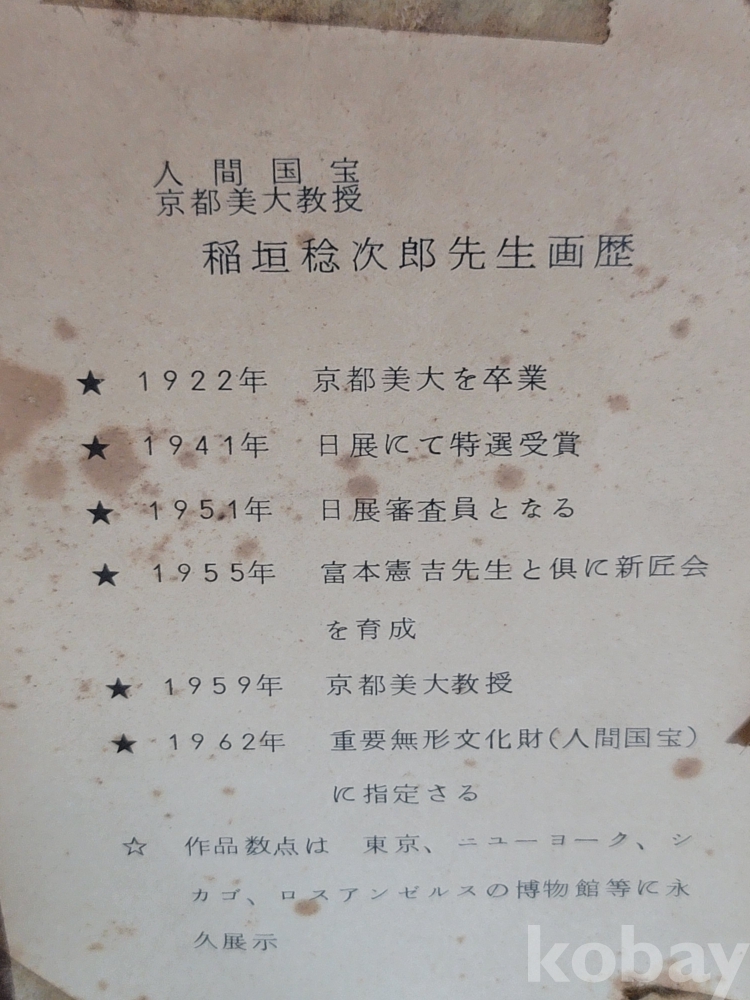 人間国宝
京都美大教授
稲垣稔次郎先生画歴
★ 1922年 京都美大を卒業
★ 1941年 日展にて特選受賞
★ 1951年 日展審査員となる
★ 1955年 富本憲吉先生と倶に新匠会
を育成
★ 1959年 京都美大教授
★ 1962年 重要無形文化財(人間国宝)
に指定さる
☆ 作品数点は 東京、ニューヨーク、シ
カゴ、ロスアンゼルスの博物館等に永
久展示
kobay